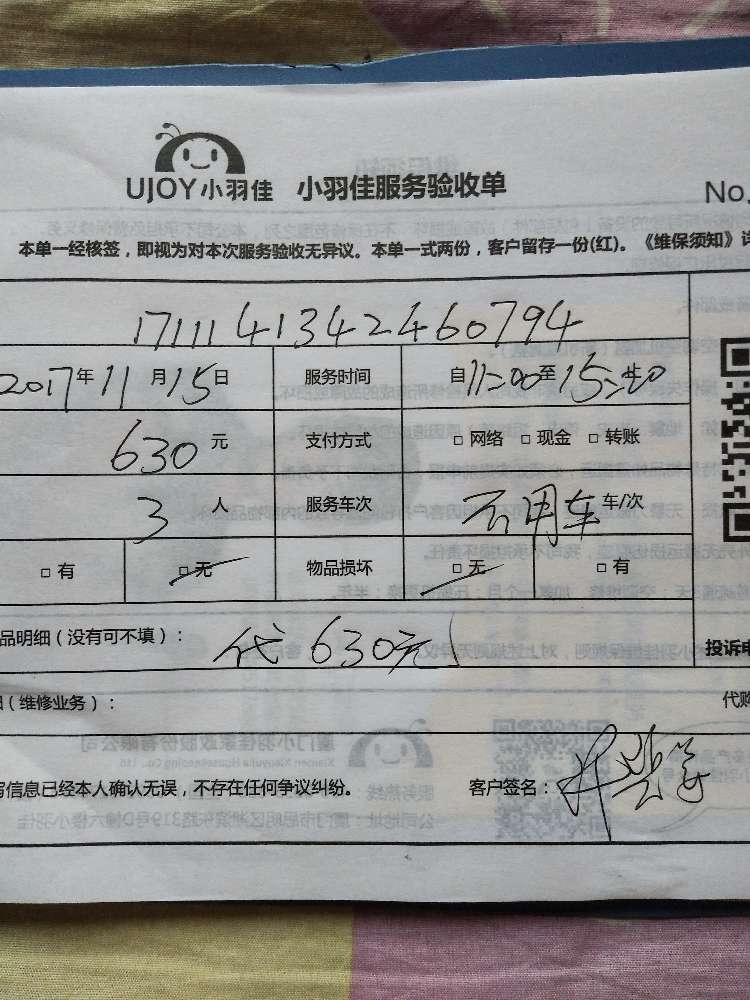 UJOY小羽佳 小羽佳服务验收单
No.
本单一经核签，即视为对本次服务验收无异议。本单一式两份，客户留存一份(红)。《维保须知》详
1711141342460794
2017年11月15日 服务时间 自11:00至15:
630元 支付方式 □ 网络 □ 现金 □ 转账
3人 服务车次 不用车 车/次
□ 有 □ 无 物品损坏 □ 无 □ 有
品明细（没有可不填）： 代630元
投诉电
（维修业务）：
代购
写信息已经本人确认无误，不存在任何争议纠纷。 客户签名：